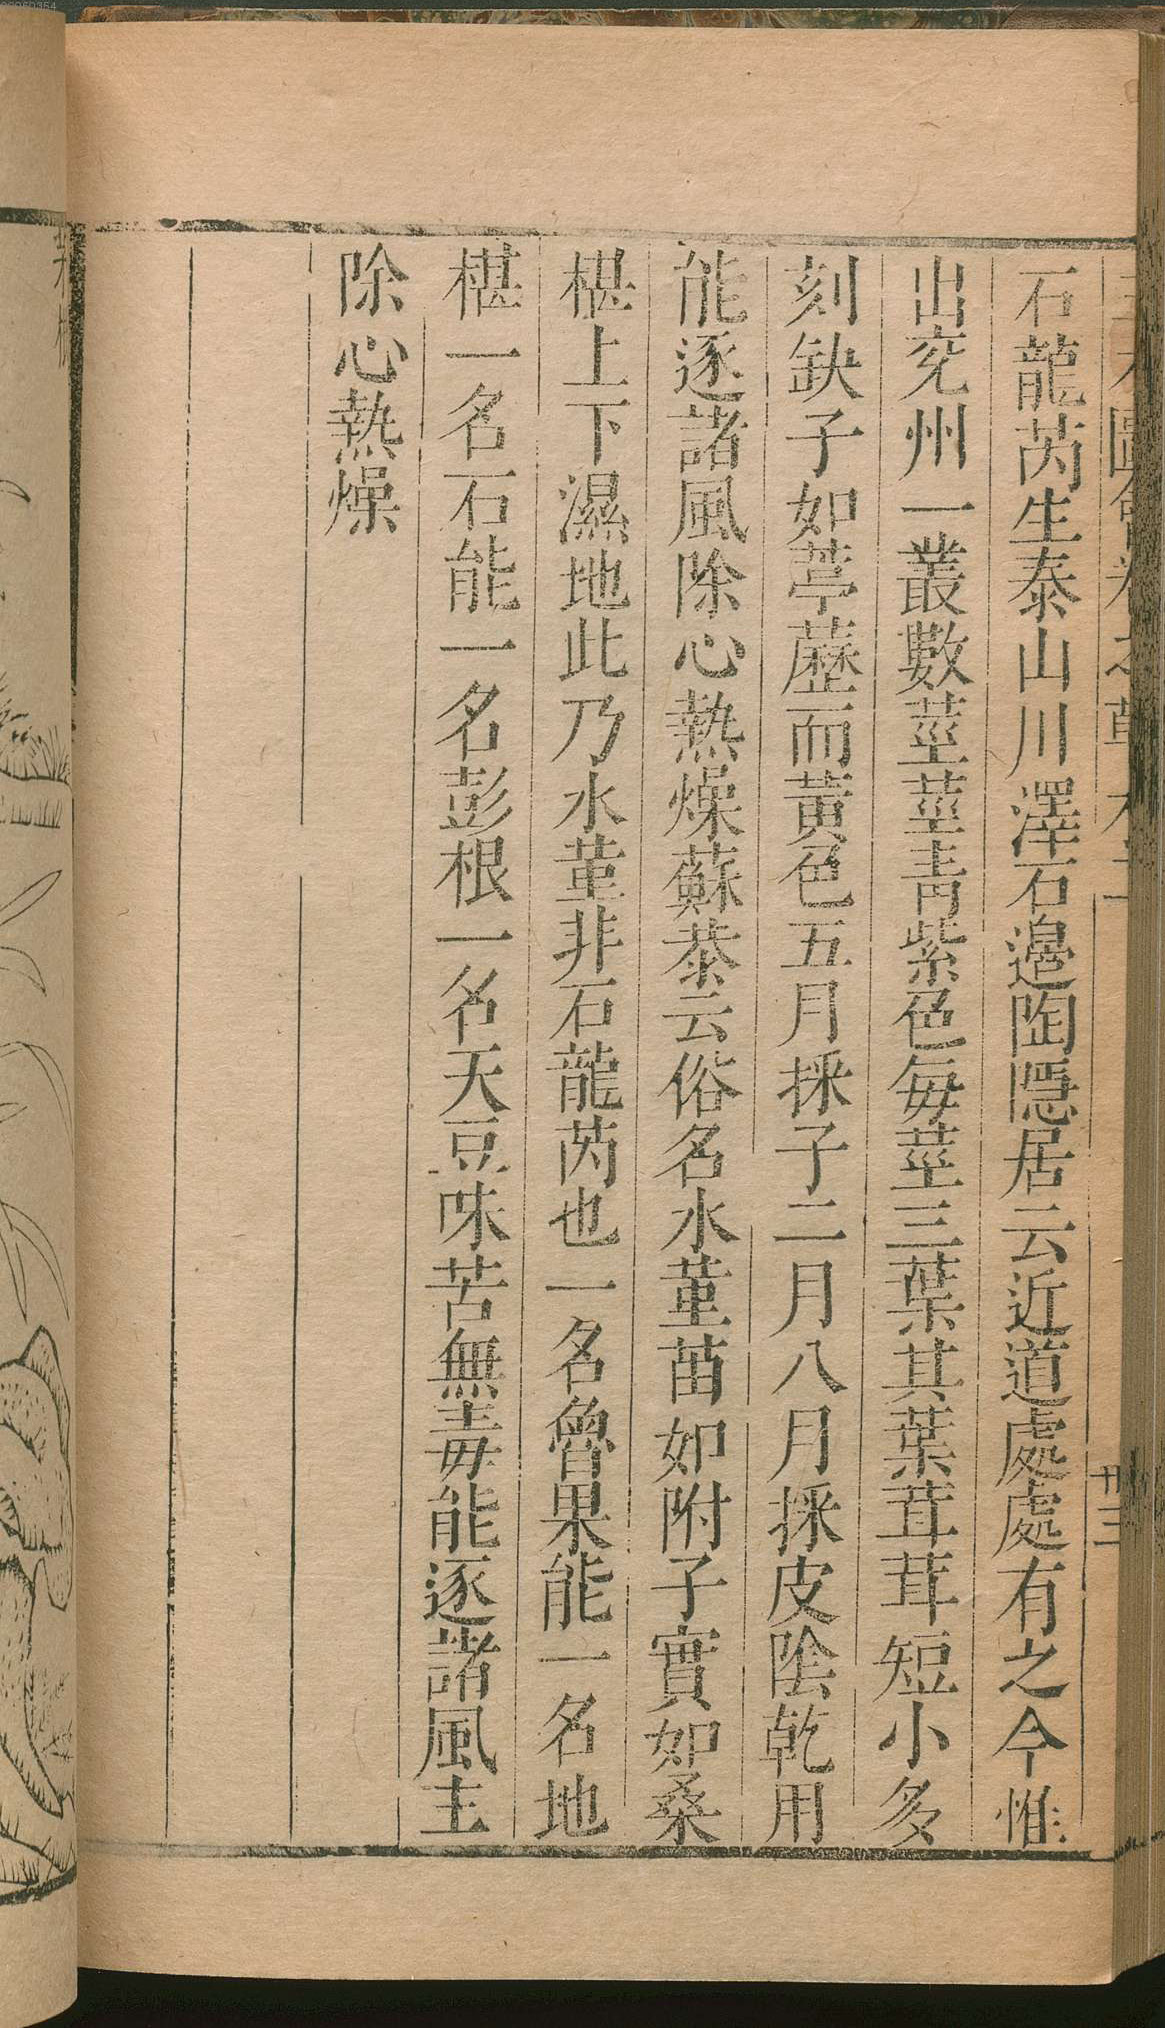 石龍芮生泰山川澤石邊陶隱居云近道處處有之今惟
出兖州一叢數莖莖青紫色每莖三葉其葉茸茸短小多
刻缺子如葶藶而黃色五月採子二月八月採皮陰乾用
能逐諸風除心熱燥蘇恭云俗名水堇苗如附子實如桑
椹上下濕地此乃水堇非石龍芮也一名魯果能一名地
椹一名石能一名彭根一名天豆味苦無毒能逐諸風主
除心熱燥